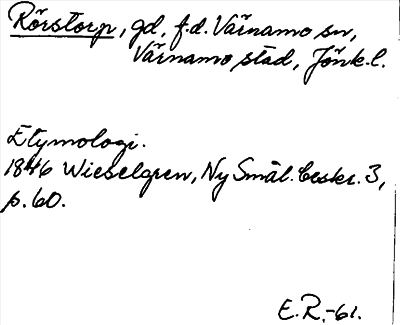 Rörstorp, gd, f.d. Värnamo sn,
Värnamo stad, Jönk.l.
Etymologi.
1846 Wieselgren, Ny Smål. beskr. 3,
p. 60.
E.R.-61.